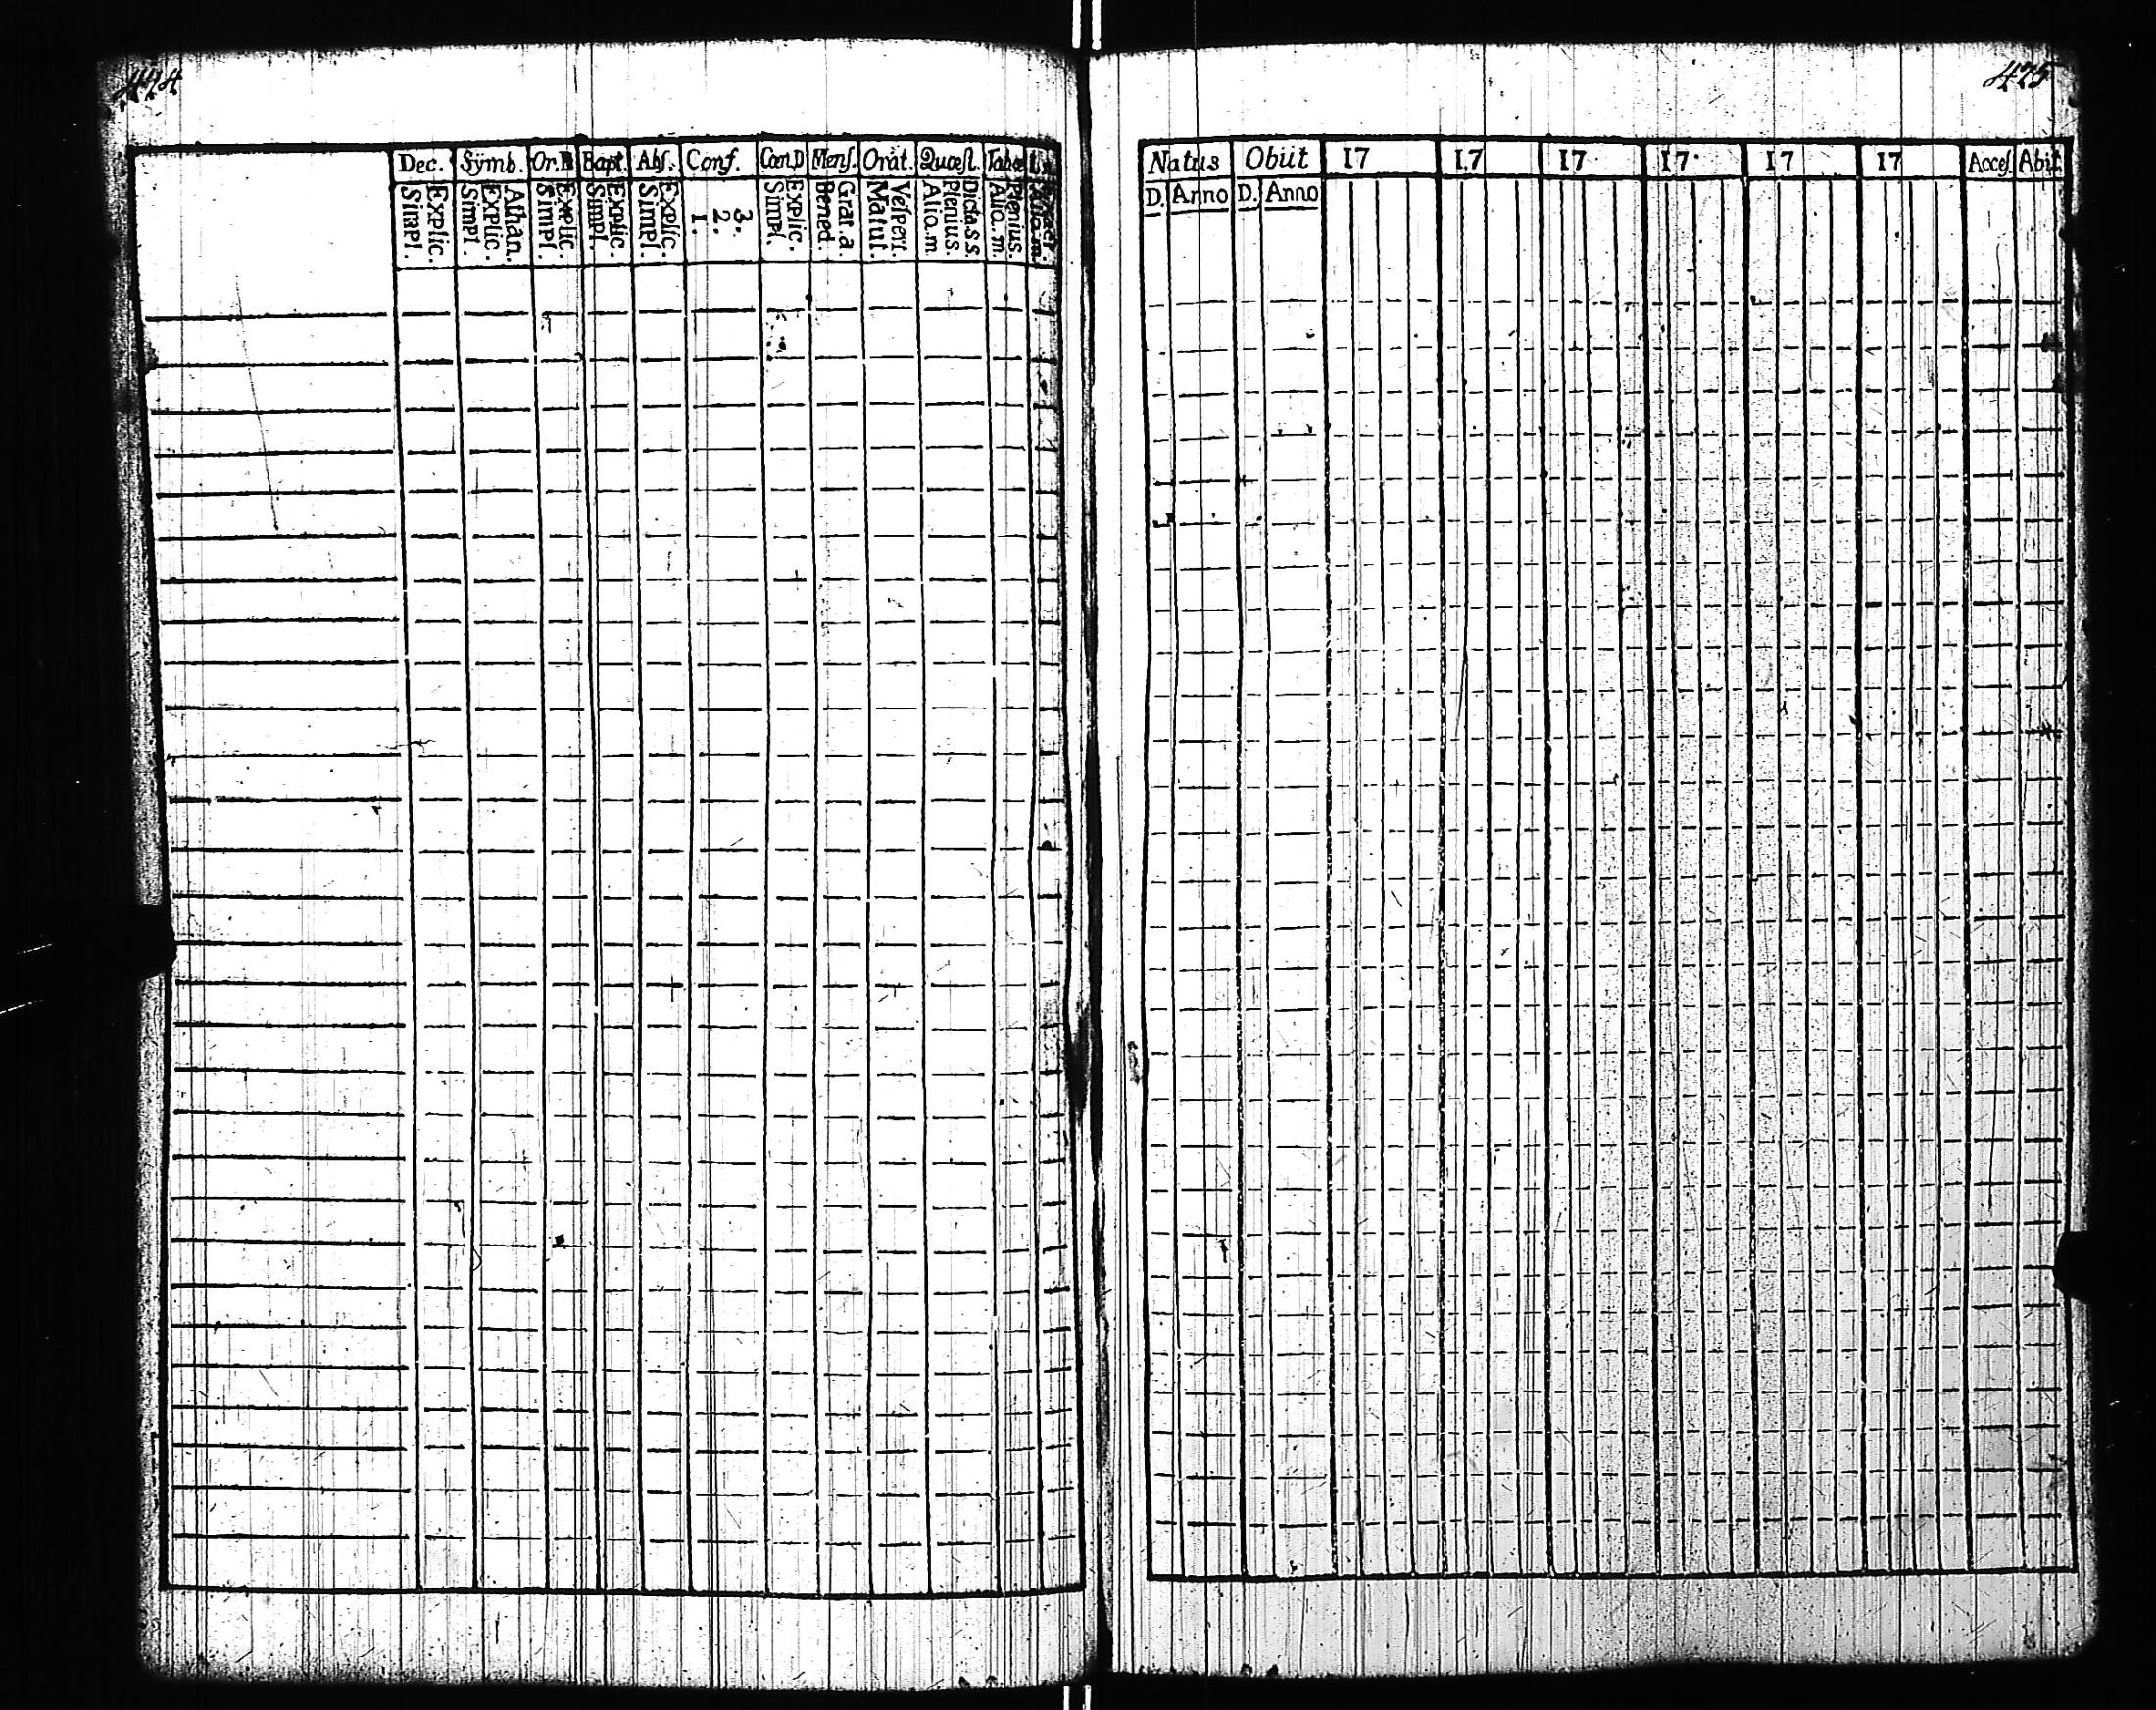 474
Dec. Sÿmb. Or.D Bapt. Abſ. Conf. Com.D Menſ. Orat. Quœſt. Tabœ
Simpl. Explic. Simpl. Explic. Athan. Simpl. Explic. Simpl. Explic. Simpl. Explic. 1. 2. 3. Simpl. Explic. Bened. Grat.a Matut. Veſpert. Alio.m Plenius. Dicta.s.s. Alio.m. Plenius.
475
Natus Obiit 17 17 17 17 17 17 Acceſ. Abit.
D. Anno D. Anno